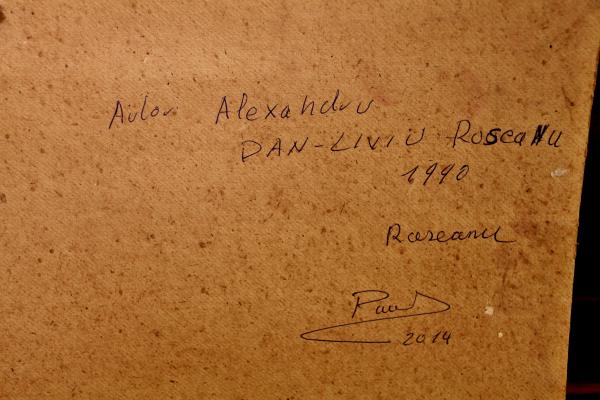 Autor Alexandru
DAN-LIVIU RoscaNu
1990
Roseanu
2014